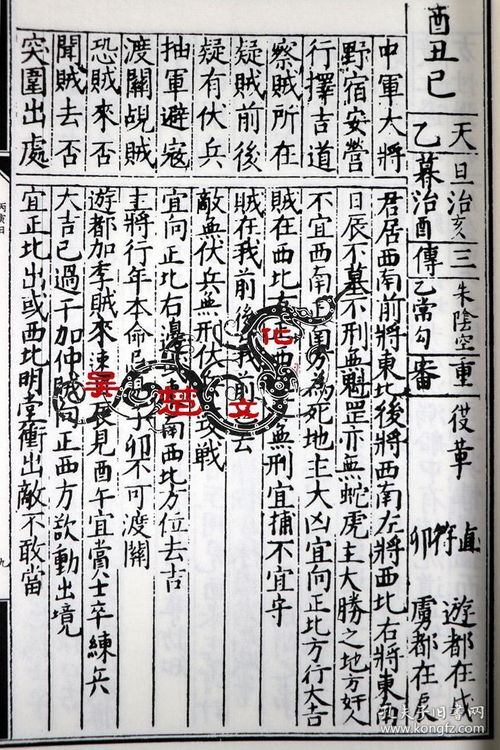 酉丑巳
天乙
旦治亥
暮治酉
三傳
朱陰空
乙常勾
重審
從革
直符卯
遊都在戌
虜都在辰
中軍大將 君居西南前將東北後將西南左將西北右將東
野宿安營 日辰不墓不刑無魁罡亦無蛇虎主大勝之地方奸人
行擇吉道 不宜西南 為死地主大凶宜向正北方行大吉
察賊所在 賊在西北 西 無刑宜捕不宜守
疑賊前後 賊在我前後 我前 去
疑有伏兵 敵無伏兵無刑伏 戰
抽軍避寇 宜向正北右邊 南西北方位去吉
渡關覘賊 主將行年本命 子卯不可渡關
恐賊來否 遊都加季賊來速 辰見酉午宜當士卒練兵
聞賊去否 大吉已過干加仲賊向正西方欲動出境
突圍出處 宜正北出或西北明堂衝出敵不敢當
丙寅日
九
吴楚文化
孔夫子旧书网
www.kongfz.com